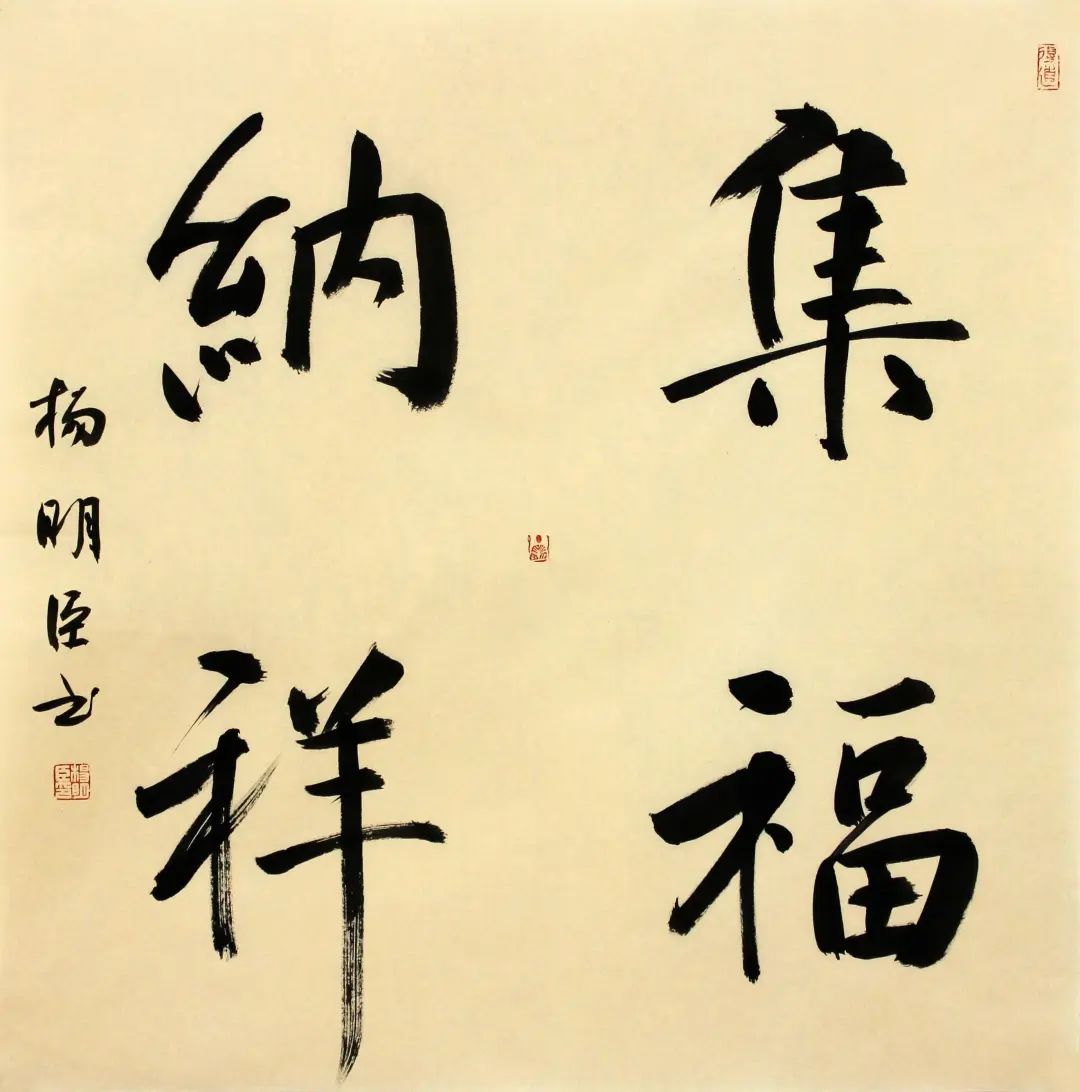 集福
納祥
杨明臣书